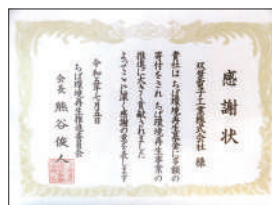 感謝状
双葉電子工業株式会社 様
貴社は ちば環境再生基金に多額の
寄付をされ ちば環境再生事業の
推進に大きく貢献されました
よってここに深く感謝の意を表します
令和五年七月五日
ちば環境再生推進委員会
会長 熊谷俊人